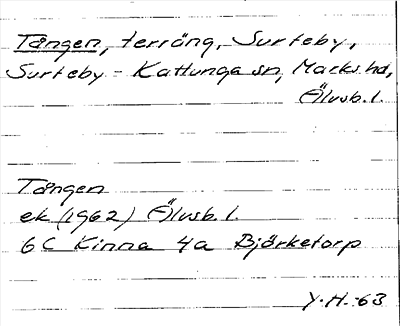 Tången, terräng, Surteby,
Surteby-Kattunga sn, Marks hd,
Älvsb. l.
Tången
ek (1962) Älvsb. l.
6C Kinna 4a Björketorp
Y.H. -63